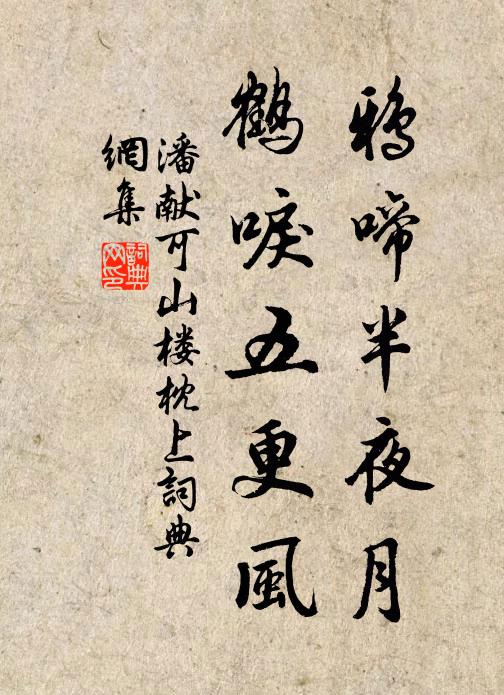 鴉啼半夜月
鶴唳五更風
潘献可山楼枕上詞典
網集
詞典网印